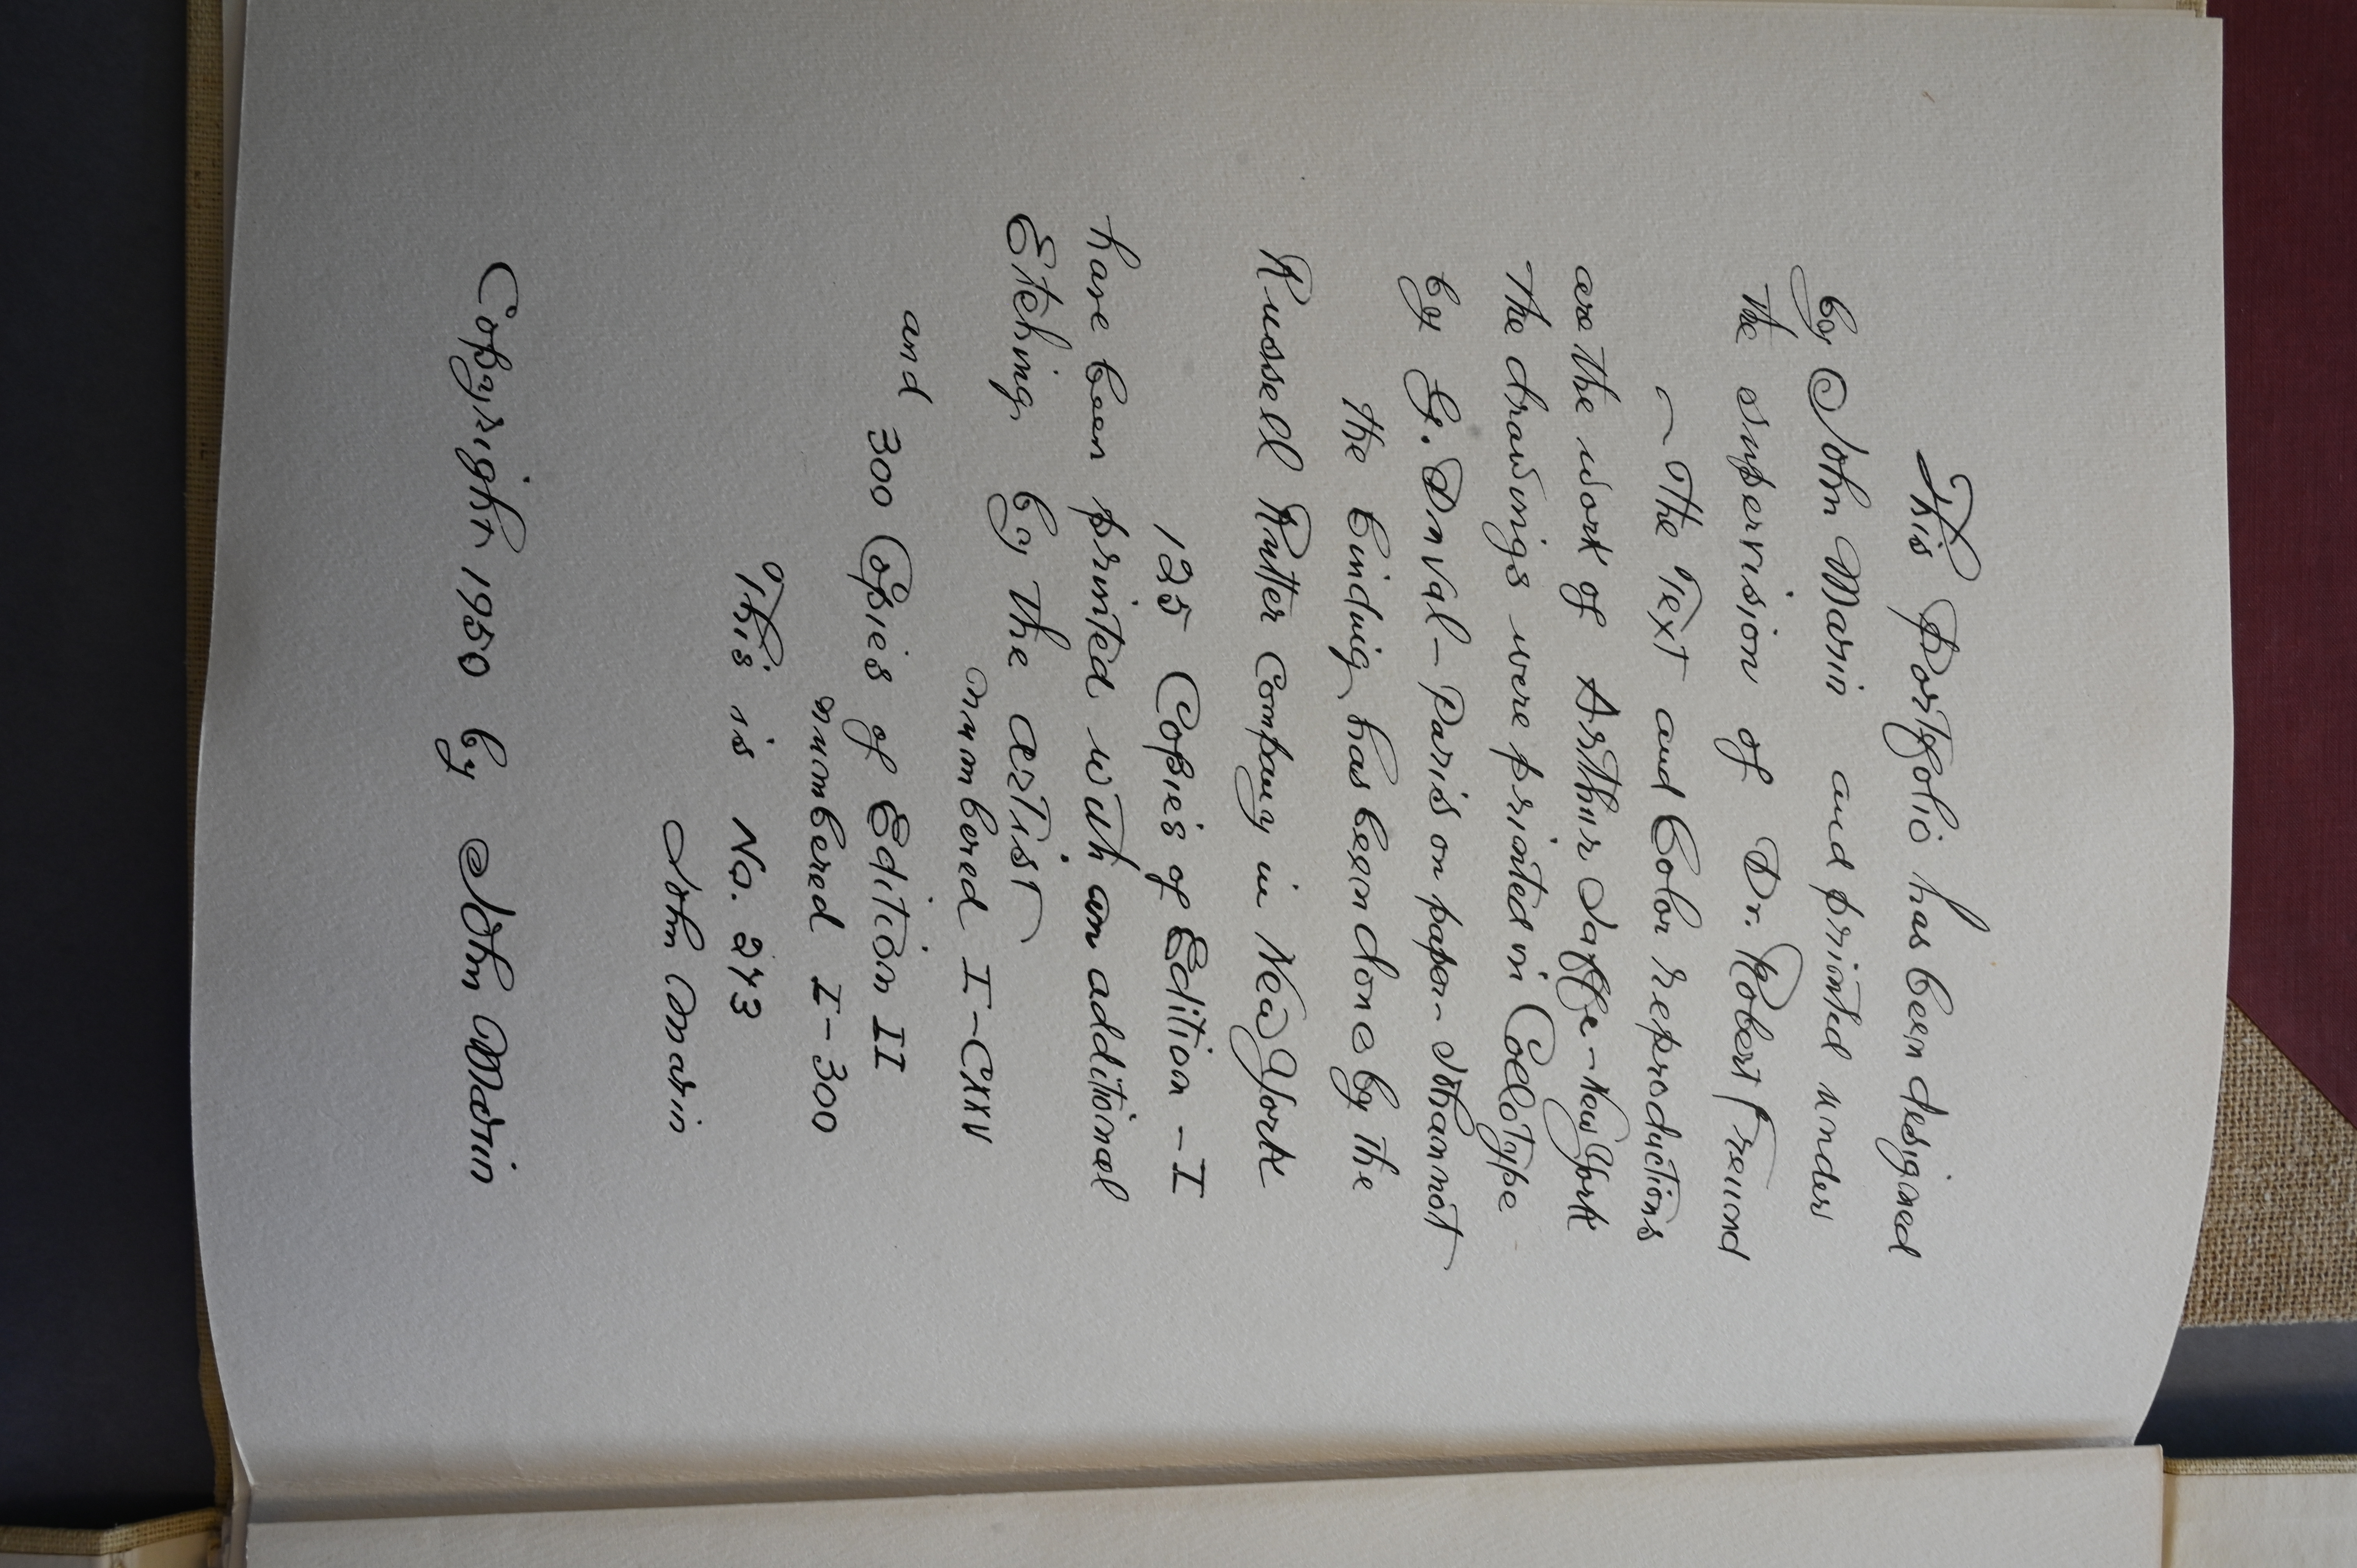 This Portfolio has been designed
by John Marin and printed under
the supervision of Dr. Robert Freund
— The Text and Color reproductions
are the work of Arthur Jaffe - New York
The drawings were printed in Collotype
by G. Duval - Paris on paper - Johannot
The binding has been done by the
Russell Rutter Company in New York
125 Copies of Edition - I
have been printed with an additional
Etching by the artist
numbered I - CXXV
and
300 Copies of Edition II
numbered I - 300
This is No. 273
John Marin
Copyright 1950 by John Marin